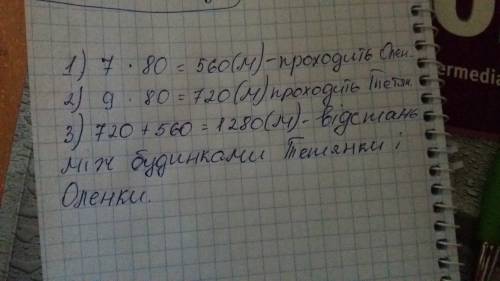 1) 7 · 80 = 560(м) - проходить Олен.
2) 9 · 80 = 720(м) проходить Тетян.
3) 720 + 560 = 1280(м) - відстань
між будинками Тетянки і
Оленки.
ermedia